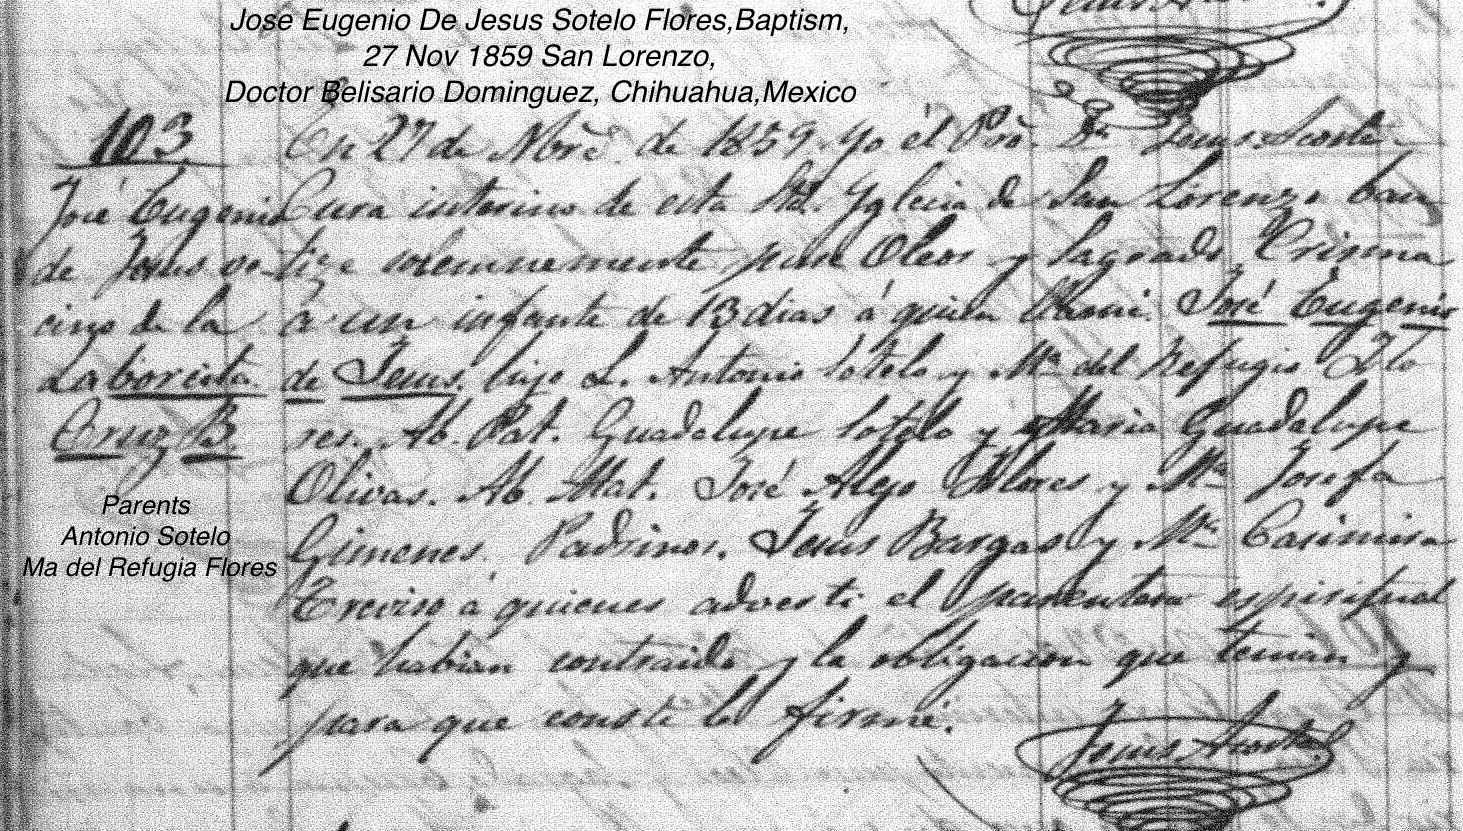 Jose Eugenio De Jesus Sotelo Flores,Baptism,
27 Nov 1859 San Lorenzo,
Doctor Belisario Dominguez, Chihuahua,Mexico
103
José Eugenio
de Jesus ve-
cino de la
Laborcita.
Cruz B.
Parents
Antonio Sotelo
Ma del Refugia Flores
En 27 de Nbre. de 1859. Yo el Pro. Dn. Jesus Acosta
Cura interino de esta Sta. Yglecia de San Lorenzo bau
tize solemnemente puse Oleos y Sagrado Crisma
á un infante de 13 dias á quien llamé. José Eugenio
de Jesus. hijo L. Antonio Sotelo y Ma. del Refugio Flo
res. Ab. Pat. Guadalupe Sotelo y Maria Guadalupe
Olivas. Ab. Mat. José Alejo Flores y Ma. Josefa
Gimenes. Padrinos. Jesus Bargas y Ma. Casimira
Treviso á quienes adverti el parentesco espiritual
que habian contraido y la obligacion que tenian y
para que conste lo firmé.
Jesus Acosta